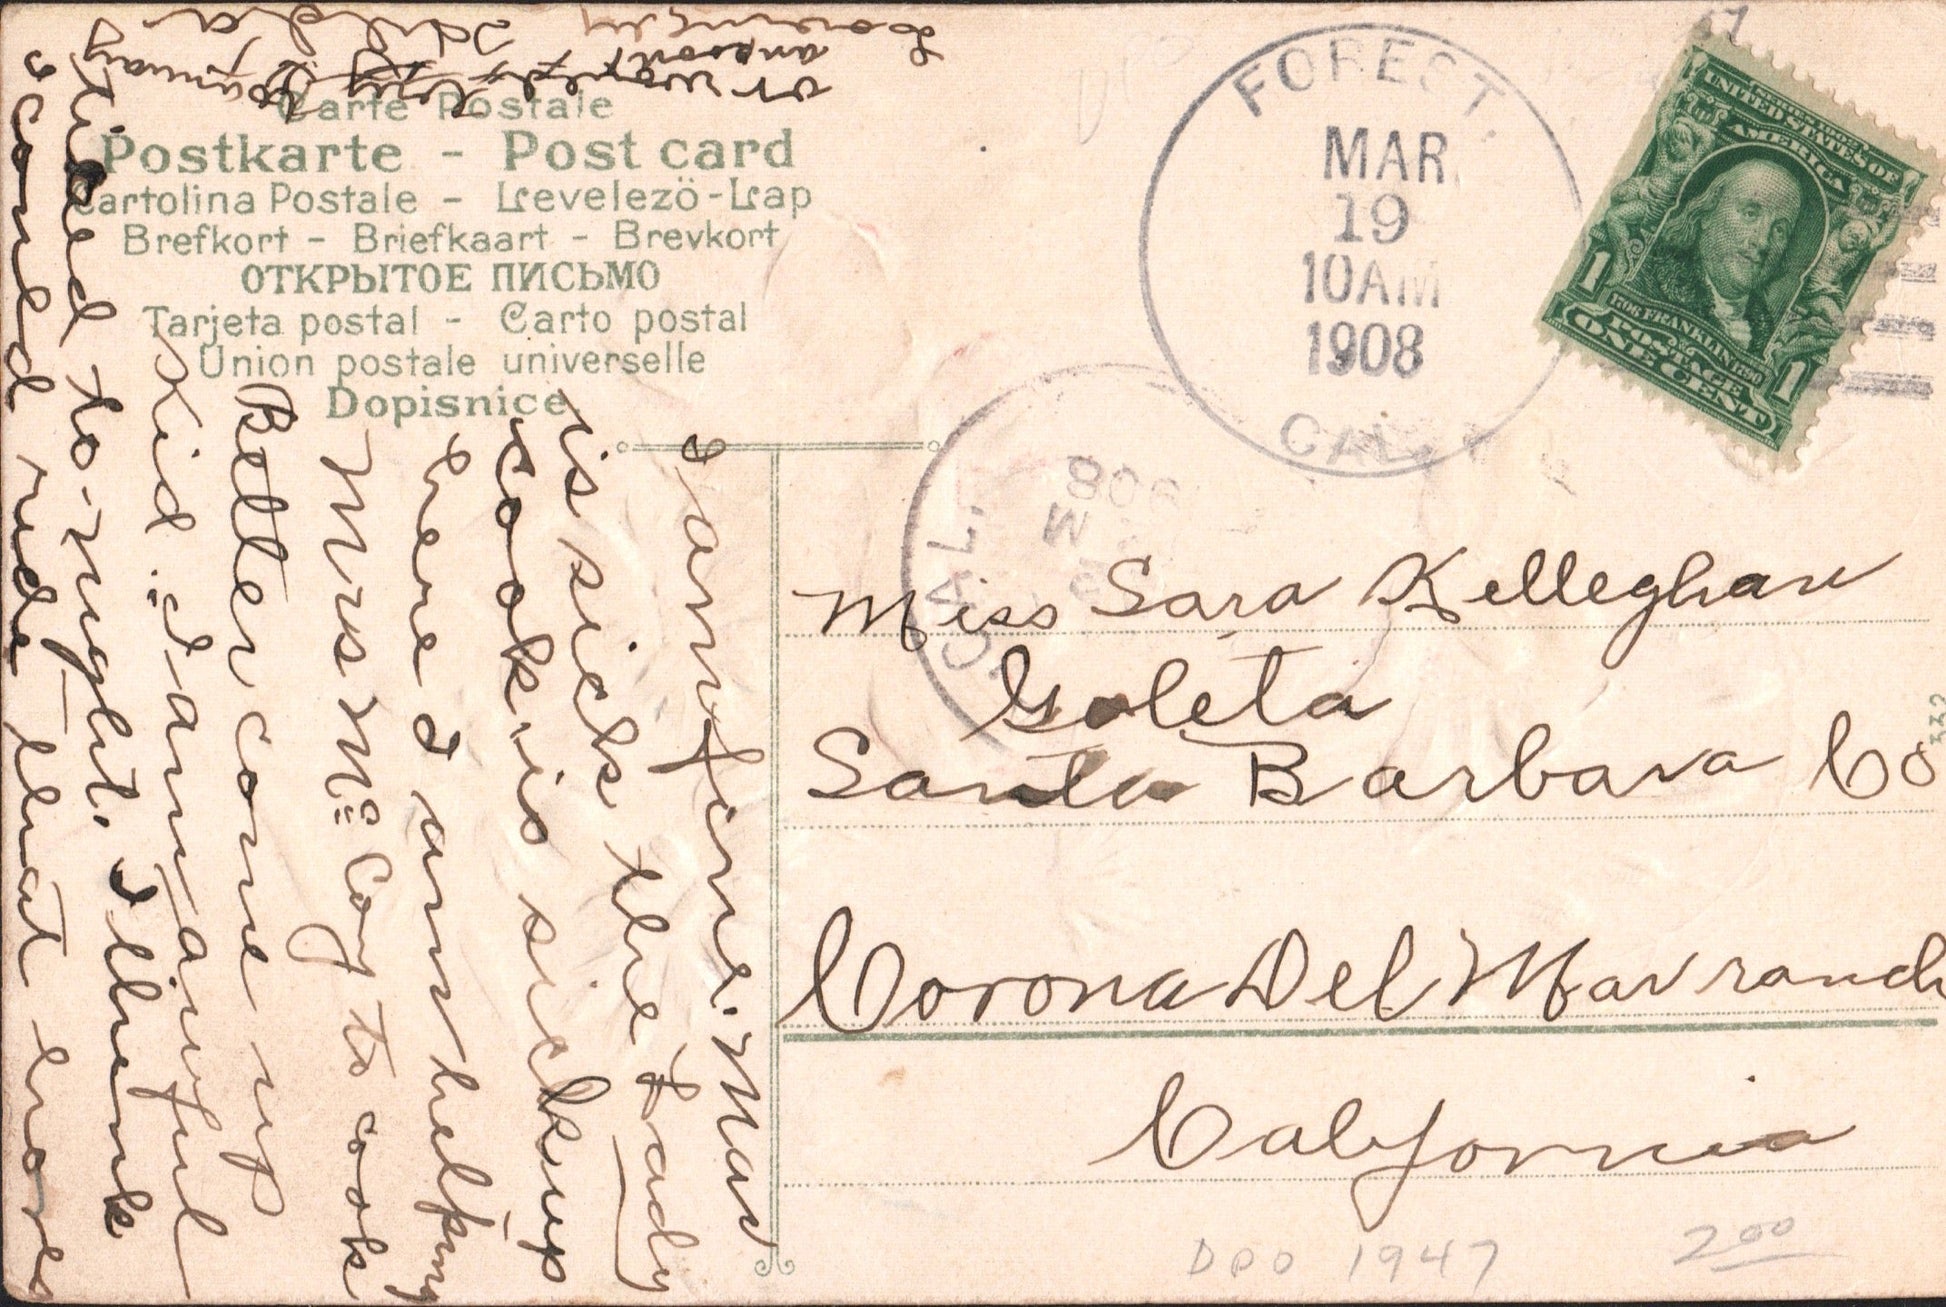 Carte Postale
Postkarte - Post card
Cartolina Postale - Levelező-Lap
Brefkort - Briefkaart - Brevkort
ОТКРЫТОЕ ПИСЬМО
Tarjeta postal - Carto postal
Union postale universelle
Dopisnice
FOREST.
MAR
19
10AM
1908
CAL.
CAL.
M
908
SERIES 1902
UNITED STATES OF
AMERICA
1 1
1706 FRANKLIN 1790
POSTAGE
ONE CENT
Miss Sara Kelleghan
Goleta
Santa Barbara Co
Corona Del Mar ranch
California
332
DPO 1947
2.00
I am fine. Man
is sick the Lady
cook is sick up
here I am helping
Mrs Mc Coy to cook
Better come up
Kid. I am awful
tired to-night. I think
I could ride that horse
answer soon
Loveingly